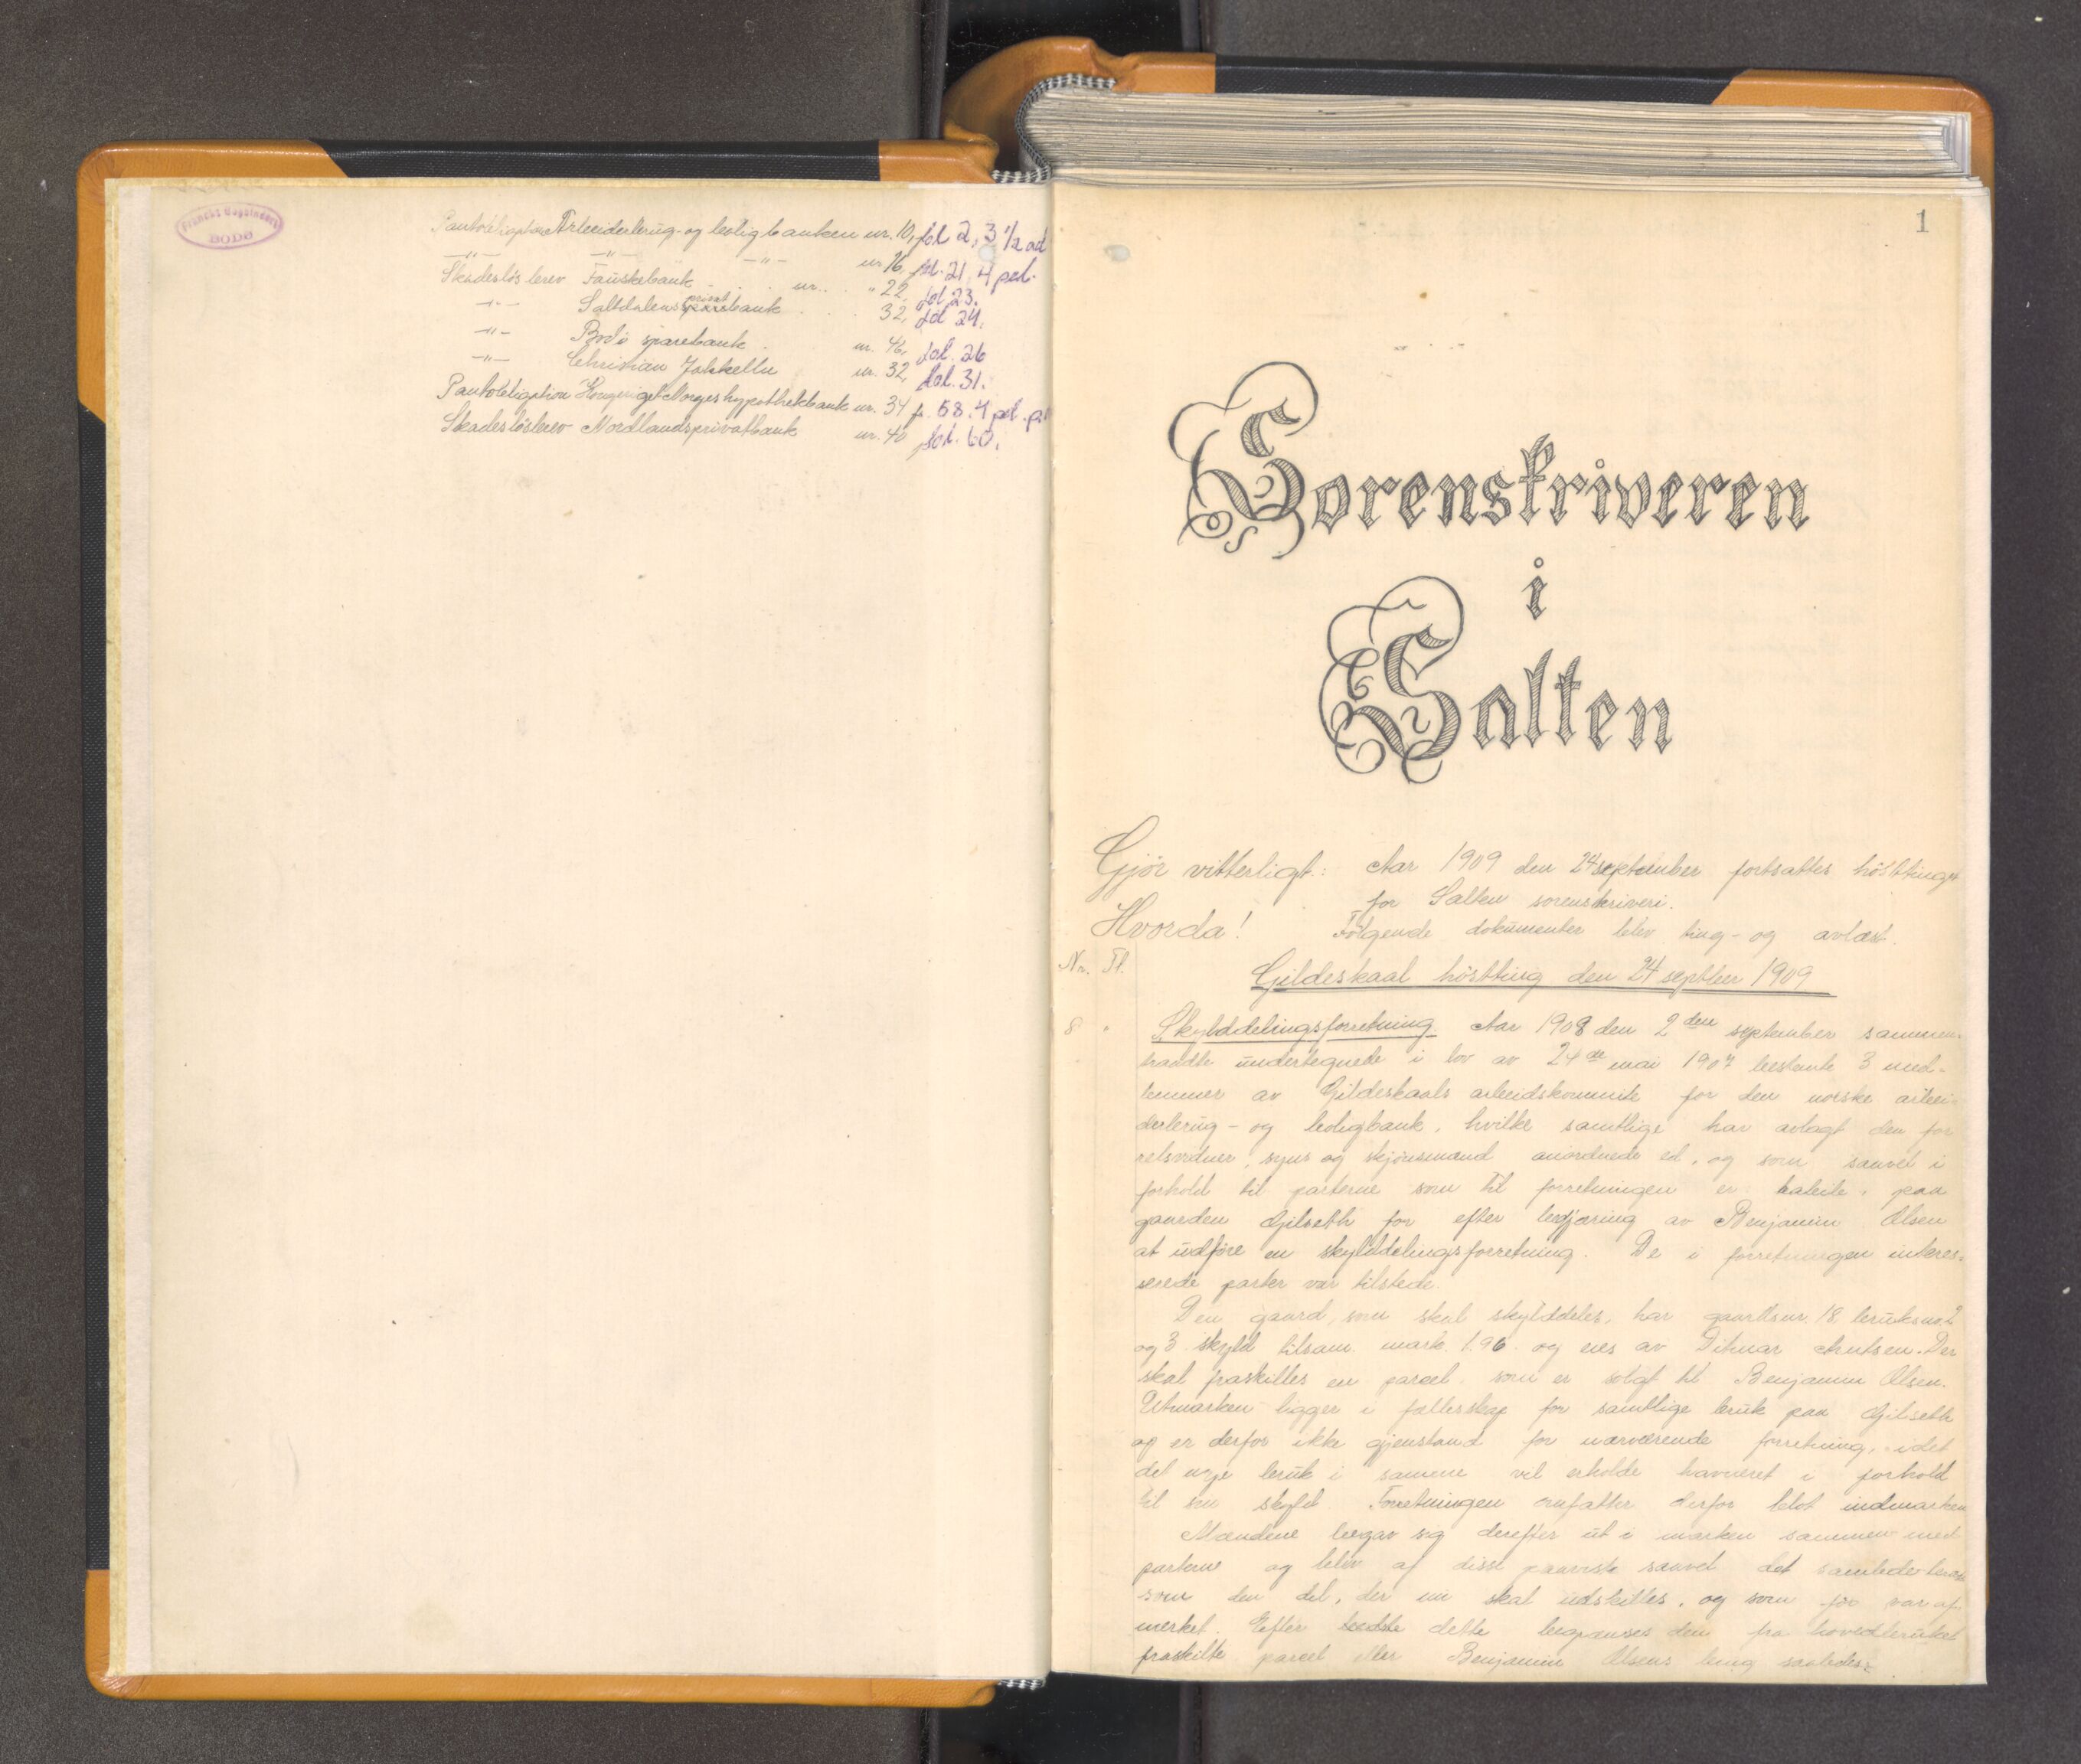 BODØ
Pantobligation Arbeiderbrug- og boligbanken nr. 10, fol 2, 3 1/2 ad
-"- -"- -"- nr 16, fol. 21, 4 pct.
Skadesløsbrev Fauskebank . . nr. . " 22, fol 23.
-"- Saltdalens privatbank . . . 32, fol 24.
-"- Bodø sparebank . nr. 46, fol. 26
-"- Christian Jakhelln nr. 32, fol. 31.
Pantobligation Kongeriget Norges hypothekbank nr. 34 f. 58. 4 pct.
Skadesløsbrev Nordlandsprivatbank nr. 40 fol. 60.
1
Sorenskriveren
i
Salten
Gjør vitterligt: Aar 1909 den 24 september fortsattes høsttinget
for Salten sorenskriveri.
Hvorda! Følgende dokumenter blev ting- og avlæst.
Nr. Fl.
Gildeskaal høstting den 24 septber 1909
8 " Skylddelingsforretning. Aar 1908 den 2den september sammen-
traadte undertegnede i lov av 24de mai 1907 bestemte 3 med-
lemmer av Gildeskaals arbeidskomite for den norske arbei-
derbrug- og boligbank, hvilke samtlige har avlagt den for
retsvidner, syns og skjønsmænd anordnede ed, og som saavel i
forhold til parterne som til forretningen er habile, paa
gaarden Gilseth for efter begjæring av Benjamin Olsen
at udføre en skylddelingsforretning. De i forretningen interes-
serede parter var tilstede.
Den gaard, som skal skylddeles, har gaardsnr. 18 bruksnr. 2
og 3 skyld tilsam. mark. 1.96 og eies av Ditmar Antsen. Der
skal fraskilles en parcel som er solgt til Benjamin Olsen.
Utmarken ligger i fællesskap for samtlige bruk paa Gilseth
og er derfor ikke gjenstand for nærværende forretning, idet
det nye bruk i samme vil erholde havneret i forhold
til sin skyld. Forretningen omfatter derfor blot indmarken
Mændene begav sig derefter ut i marken sammen med
parterne og blev af disse paavist saavel det samlede bruk
som den del, der nu skal udskilles, og som før var af-
merket. Efter dette begrænses den fra hovedbruket
fraskilte parcel eller Benjamin Olsens brug saaledes: